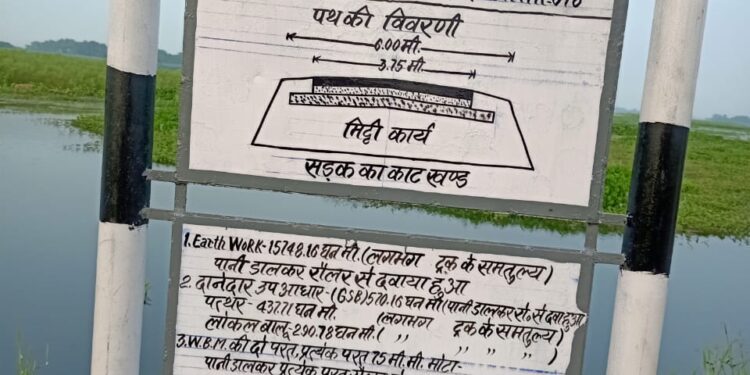 पथ की विवरणी
6.00 मी.
3.75 मी.
मिट्टी कार्य
सड़क का काट खण्ड
1. Earth Work - 15748.16 घन मी. (लगभग ट्रक के समतुल्य)
पानी डालकर रौलर से दवाया हुआ
2. दानेदार उप आधार - (GSB) 570.16 घन मी (पानी डालकर रो. से दवा हुआ
पत्थर - 437.71 घन मी. (लगभग ट्रक के समतुल्य)
लोकल वालू - 290.78 घन मी. ( ,, ,, ,, ,, )
3. W.B.M. की दो परत, प्रत्येक परत 75 मी. मी. मोटा -
पानी डालकर प्रत्येक परत